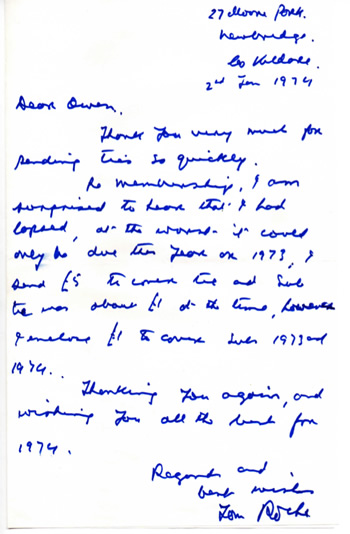 27 Moore Park.
Newbridge.
Co Kildare.
2nd Jan 1974
Dear Owen,
Thank you very much for
sending this so quickly.
Re membership, I am
surprised to hear that I had
lapsed, at the worst it could
only be due this year or 1973, I
send £5 to cover the ad Sub
was about £1 at the time, however
I enclose £1 to cover subs 1973 and
1974.
Thanking you again, and
wishing you all the best for
1974.
Regards and
best wishes
Tom Roche